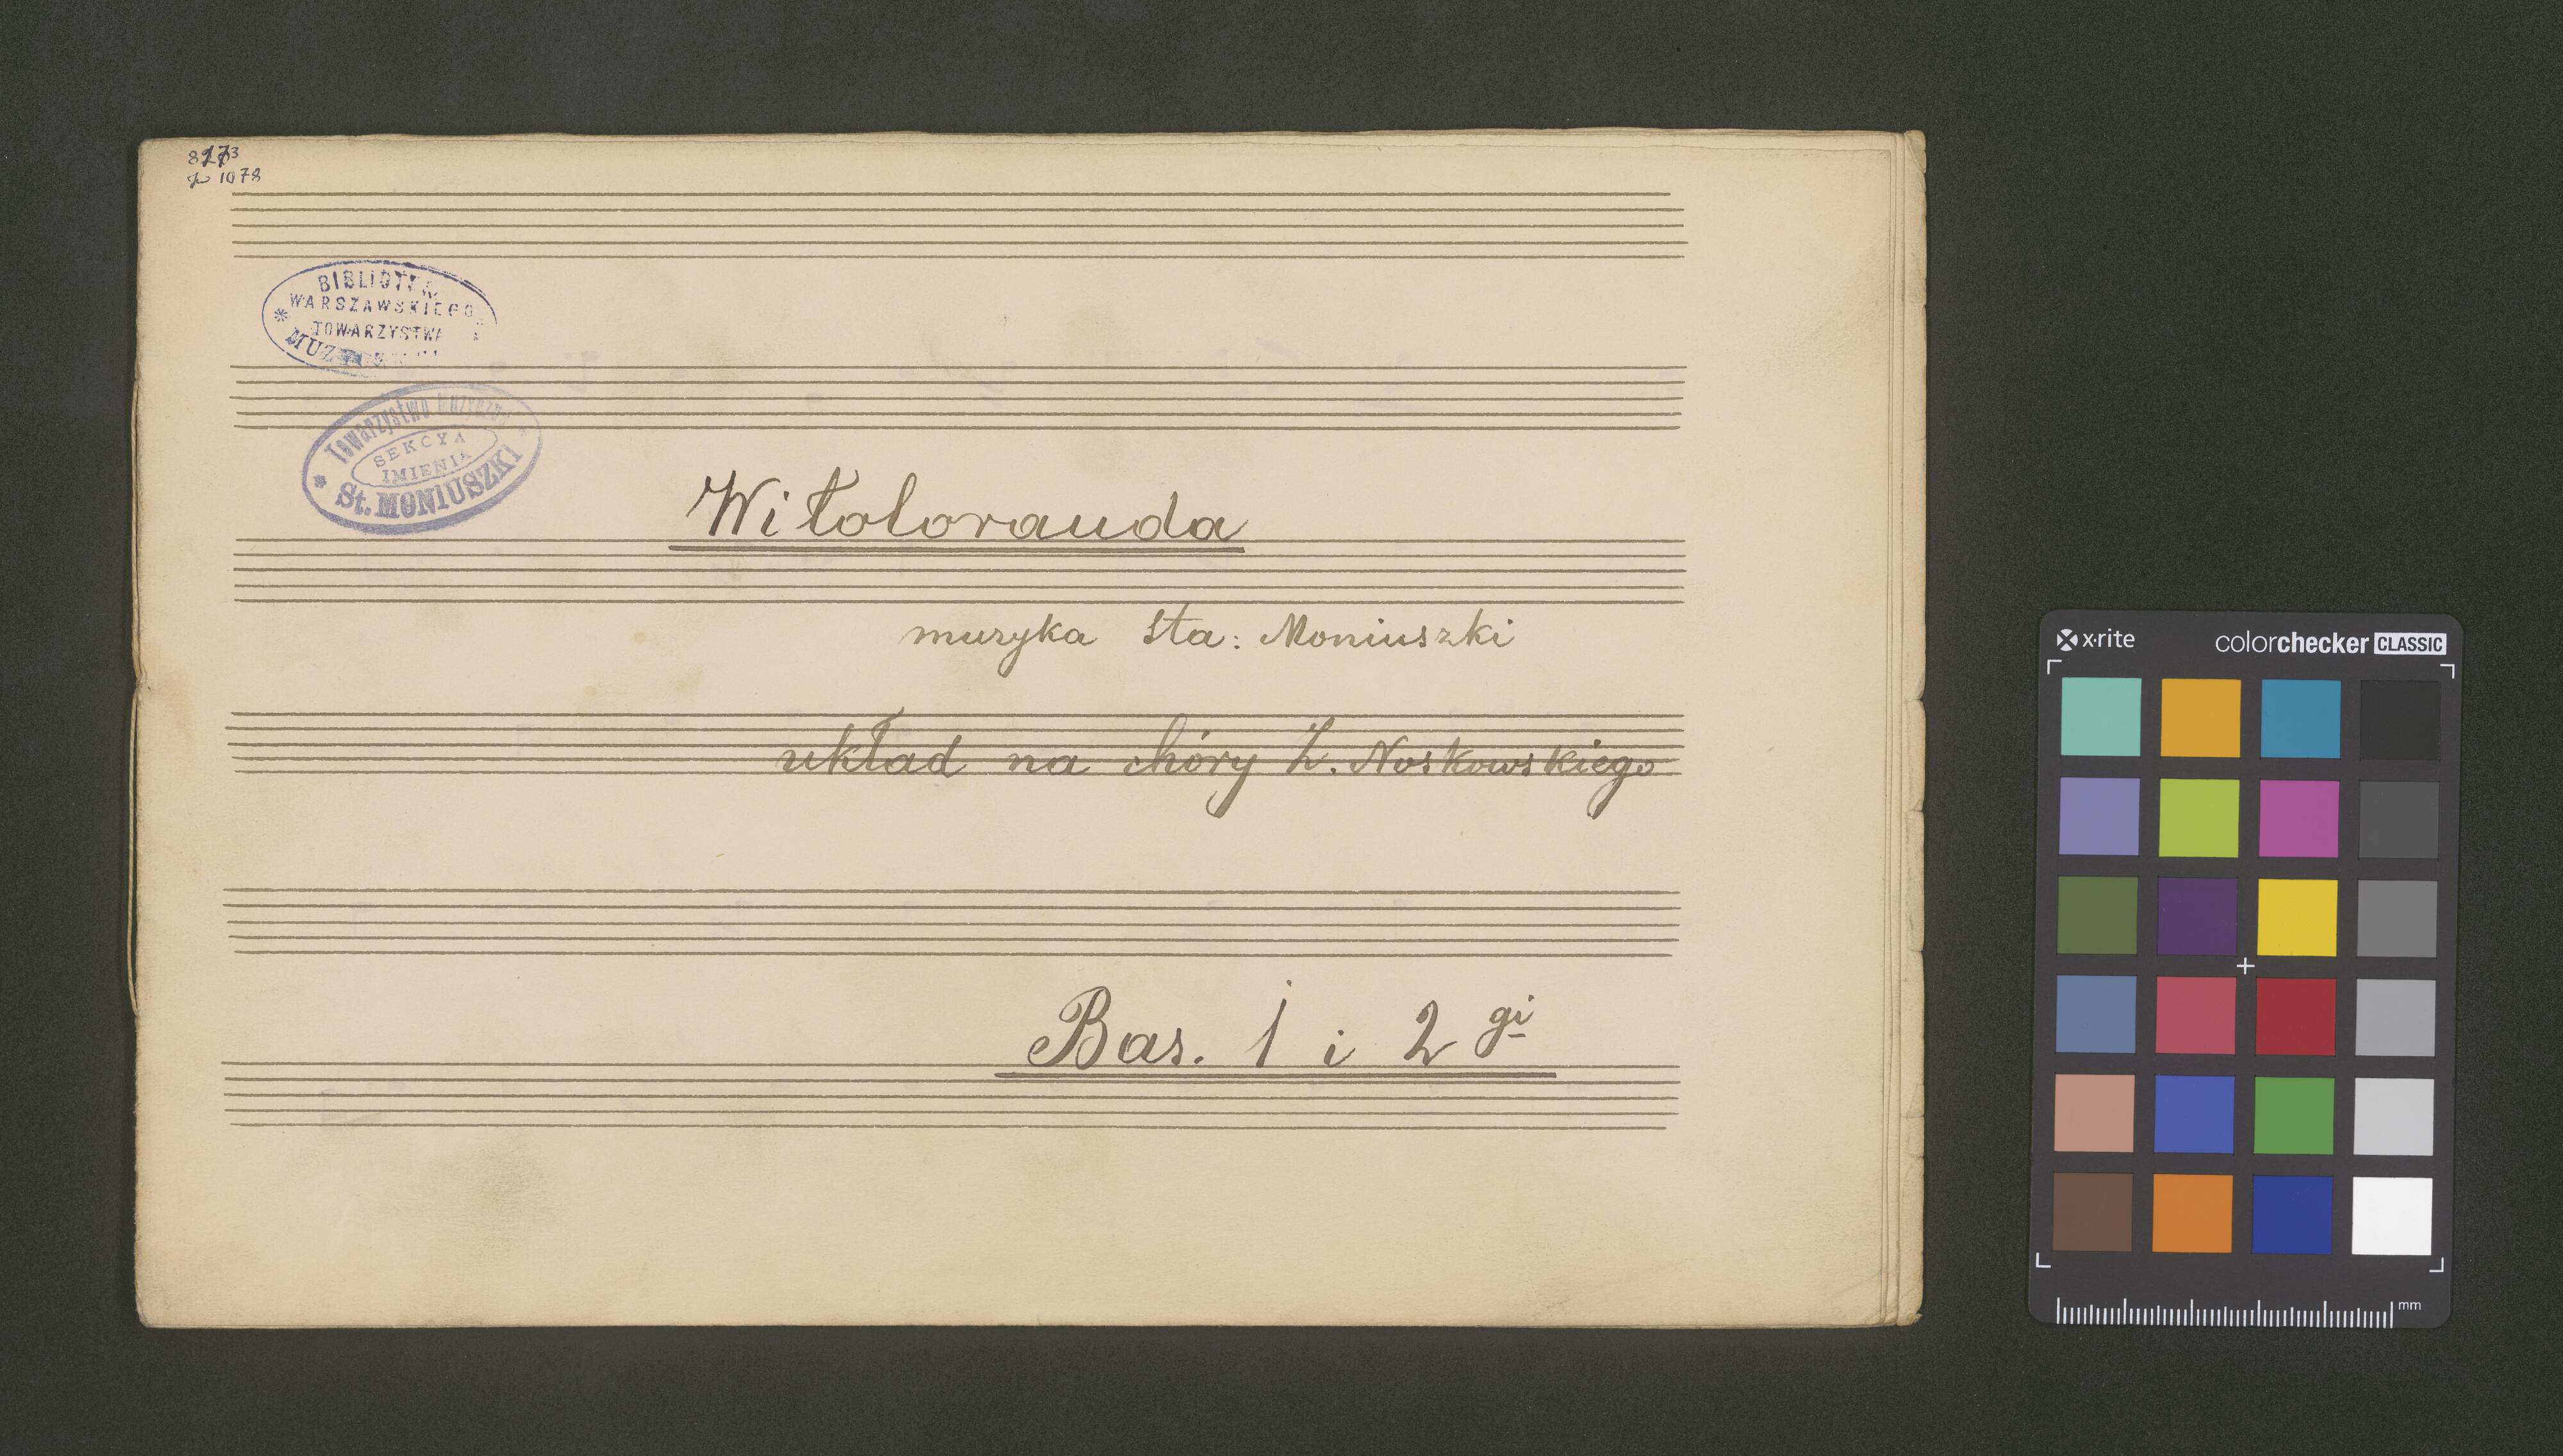 1078
BIBLIOTEKA
WARSZAWSKIEGO
TOWARZYSTWA
Towarzystwo Muzyczne
SEKCYA
IMIENIA
St. MONIUSZKI
Witolorauda
muzyka Sta: Moniuszki
układ na chóry Z. Noskowskiego
Bas. 1 i 2 gi
x-rite
colorchecker CLASSIC
mm